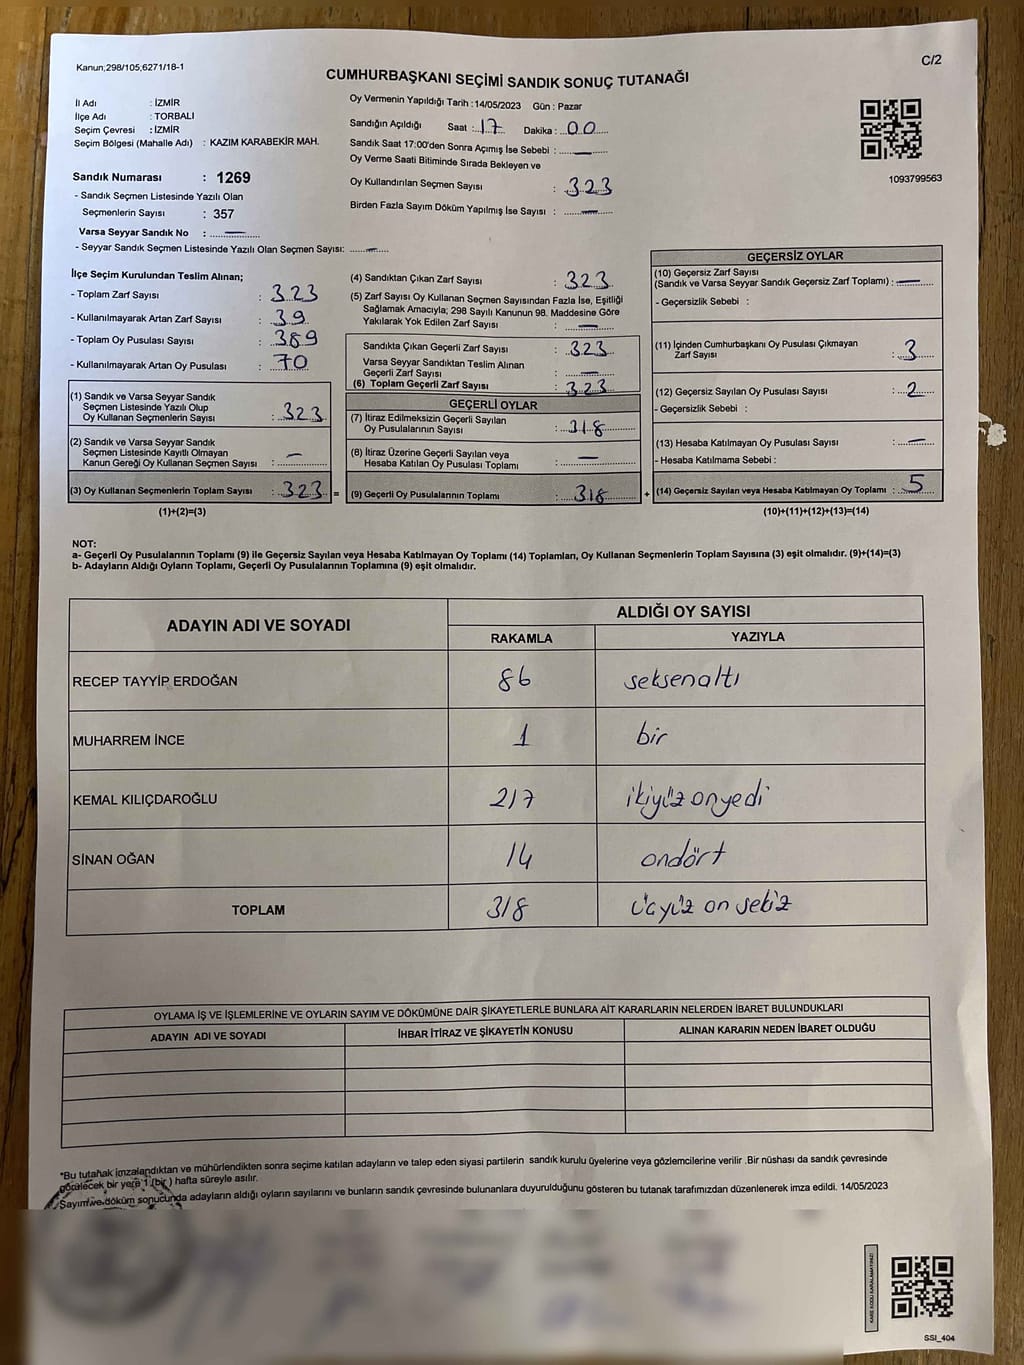 Kanun;298/105,6271/18-1
C/2
CUMHURBAŞKANI SEÇİMİ SANDIK SONUÇ TUTANAĞI
İl Adı : İZMİR
İlçe Adı : TORBALI
Seçim Çevresi : İZMİR
Seçim Bölgesi (Mahalle Adı) : KAZIM KARABEKİR MAH.
Sandık Numarası : 1269
- Sandık Seçmen Listesinde Yazılı Olan
Seçmenlerin Sayısı : 357
Varsa Seyyar Sandık No : —
- Seyyar Sandık Seçmen Listesinde Yazılı Olan Seçmen Sayısı: —
Oy Vermenin Yapıldığı Tarih : 14/05/2023 Gün : Pazar
Sandığın Açıldığı Saat : 17 Dakika : 00
Sandık Saat 17:00'den Sonra Açımış İse Sebebi : —
Oy Verme Saati Bitiminde Sırada Bekleyen ve
Oy Kullandırılan Seçmen Sayısı : 323
Birden Fazla Sayım Döküm Yapılmış İse Sayısı : —
1093799563
İlçe Seçim Kurulundan Teslim Alınan;
- Toplam Zarf Sayısı : 323
- Kullanılmayarak Artan Zarf Sayısı : 39
- Toplam Oy Pusulası Sayısı : 389
- Kullanılmayarak Artan Oy Pusulası : 70
(1) Sandık ve Varsa Seyyar Sandık
Seçmen Listesinde Yazılı Olup
Oy Kullanan Seçmenlerin Sayısı : 323
(2) Sandık ve Varsa Seyyar Sandık
Seçmen Listesinde Kayıtlı Olmayan
Kanun Gereği Oy Kullanan Seçmen Sayısı : —
(3) Oy Kullanan Seçmenlerin Toplam Sayısı : 323 =
(1)+(2)=(3)
(4) Sandıktan Çıkan Zarf Sayısı : 323
(5) Zarf Sayısı Oy Kullanan Seçmen Sayısından Fazla İse, Eşitliği
Sağlamak Amacıyla; 298 Sayılı Kanunun 98. Maddesine Göre
Yakılarak Yok Edilen Zarf Sayısı : —
Sandıkta Çıkan Geçerli Zarf Sayısı : 323
Varsa Seyyar Sandıktan Teslim Alınan
Geçerli Zarf Sayısı : —
(6) Toplam Geçerli Zarf Sayısı : 323
GEÇERLİ OYLAR
(7) İtiraz Edilmeksizin Geçerli Sayılan
Oy Pusulalarının Sayısı : 318
(8) İtiraz Üzerine Geçerli Sayılan veya
Hesaba Katılan Oy Pusulası Toplamı : —
(9) Geçerli Oy Pusulalarının Toplamı : 318 +
GEÇERSİZ OYLAR
(10) Geçersiz Zarf Sayısı
(Sandık ve Varsa Seyyar Sandık Geçersiz Zarf Toplamı) : —
- Geçersizlik Sebebi :
(11) İçinden Cumhurbaşkanı Oy Pusulası Çıkmayan
Zarf Sayısı : 3
(12) Geçersiz Sayılan Oy Pusulası Sayısı : 2
- Geçersizlik Sebebi :
(13) Hesaba Katılmayan Oy Pusulası Sayısı : —
- Hesaba Katılmama Sebebi :
(14) Geçersiz Sayılan veya Hesaba Katılmayan Oy Toplamı : 5
(10)+(11)+(12)+(13)=(14)
NOT:
a- Geçerli Oy Pusulalarının Toplamı (9) ile Geçersiz Sayılan veya Hesaba Katılmayan Oy Toplamı (14) Toplamları, Oy Kullanan Seçmenlerin Toplam Sayısına (3) eşit olmalıdır. (9)+(14)=(3)
b- Adayların Aldığı Oyların Toplamı, Geçerli Oy Pusulalarının Toplamına (9) eşit olmalıdır.
ADAYIN ADI VE SOYADI ALDIĞI OY SAYISI
RAKAMLA YAZIYLA
RECEP TAYYİP ERDOĞAN 86 seksenaltı
MUHARREM İNCE 1 bir
KEMAL KILIÇDAROĞLU 217 ikiyüz onyedi
SİNAN OĞAN 14 ondört
TOPLAM 318 üçyüz on sekiz
OYLAMA İŞ VE İŞLEMLERİNE VE OYLARIN SAYIM VE DÖKÜMÜNE DAİR ŞİKAYETLERLE BUNLARA AİT KARARLARIN NELERDEN İBARET BULUNDUKLARI
ADAYIN ADI VE SOYADI İHBAR İTİRAZ VE ŞİKAYETİN KONUSU ALINAN KARARIN NEDEN İBARET OLDUĞU
*Bu tutanak imzalandıktan ve mühürlendikten sonra seçime katılan adayların ve talep eden siyasi partilerin sandık kurulu üyelerine veya gözlemcilerine verilir .Bir nüshası da sandık çevresinde
görülecek bir yere 1 (bir ) hafta süreyle asılır.
Sayım ve döküm sonucunda adayların aldığı oyların sayılarını ve bunların sandık çevresinde bulunanlara duyurulduğunu gösteren bu tutanak tarafımızdan düzenlenerek imza edildi. 14/05/2023
KARE KODU KARALAMAYINIZ!
SSI_404